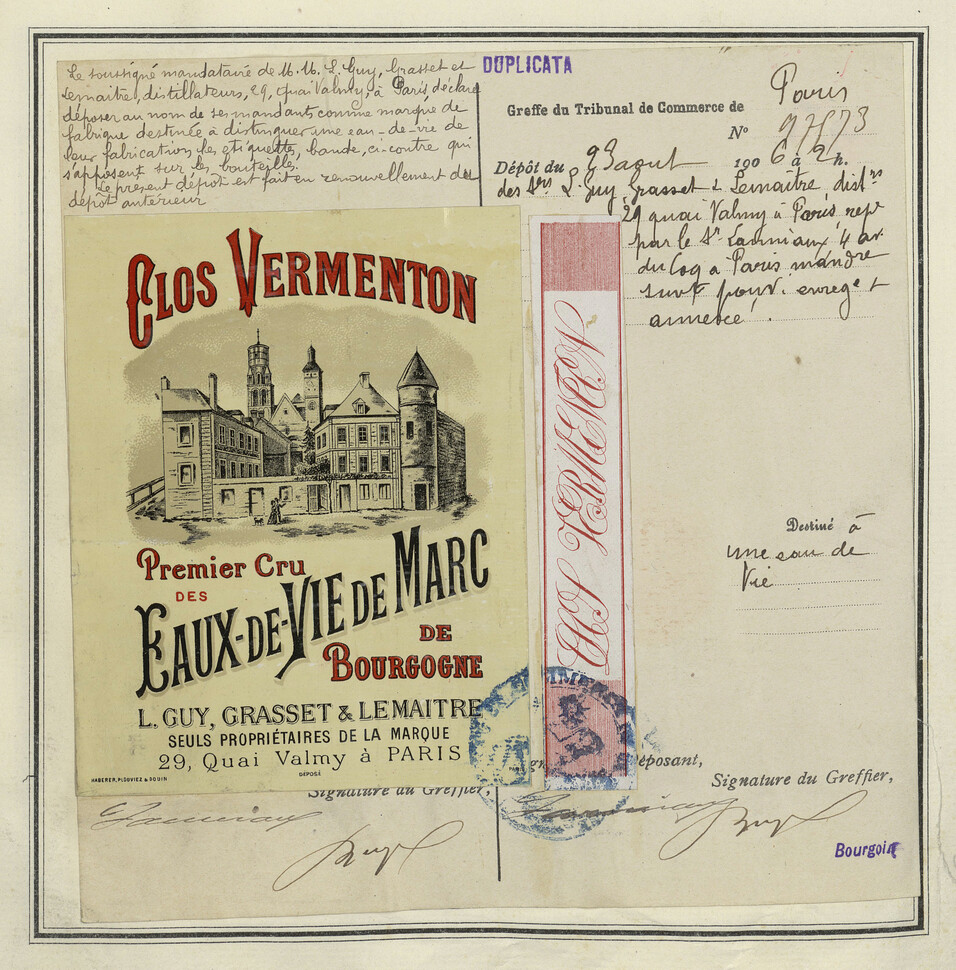 Le soussigné mandataire de M.M. L. Guy, Grasset et
Lemaitre, distillateurs, 29, quai Valmy, à Paris, déclare
déposer au nom de ses mandants comme marque de
fabrique destinée à distinguer une eau-de-vie de
leur fabrication les étiquettes, bande, ci-contre qui
s'apposent sur les bouteilles.
Le présent dépôt est fait en renouvellement de
dépôt antérieur
DUPLICATA
Greffe du Tribunal de Commerce de Paris
N°
Dépôt du 23 aout 1906 à 2 h.
des Srs L. Guy, Grasset & Lemaitre, distrs
29 quai Valmy à Paris repr
par le Sr 4 av.
du Coq à Paris
suivt pouv. enregt
annexé.
CLOS VERMENTON
Premier Cru
DES
EAUX-DE-VIE DE MARC
DE
BOURGOGNE
L. GUY, GRASSET & LEMAITRE
SEULS PROPRIÉTAIRES DE LA MARQUE
29, Quai Valmy à PARIS
DÉPOSÉ
HABERER, PLOUVIEZ & DODIN
CLOS VERMENTON
Destiné à
une eau de
Vie
éposant,
Signature du Greffier,
Signature du Greffier,
Bourgoin